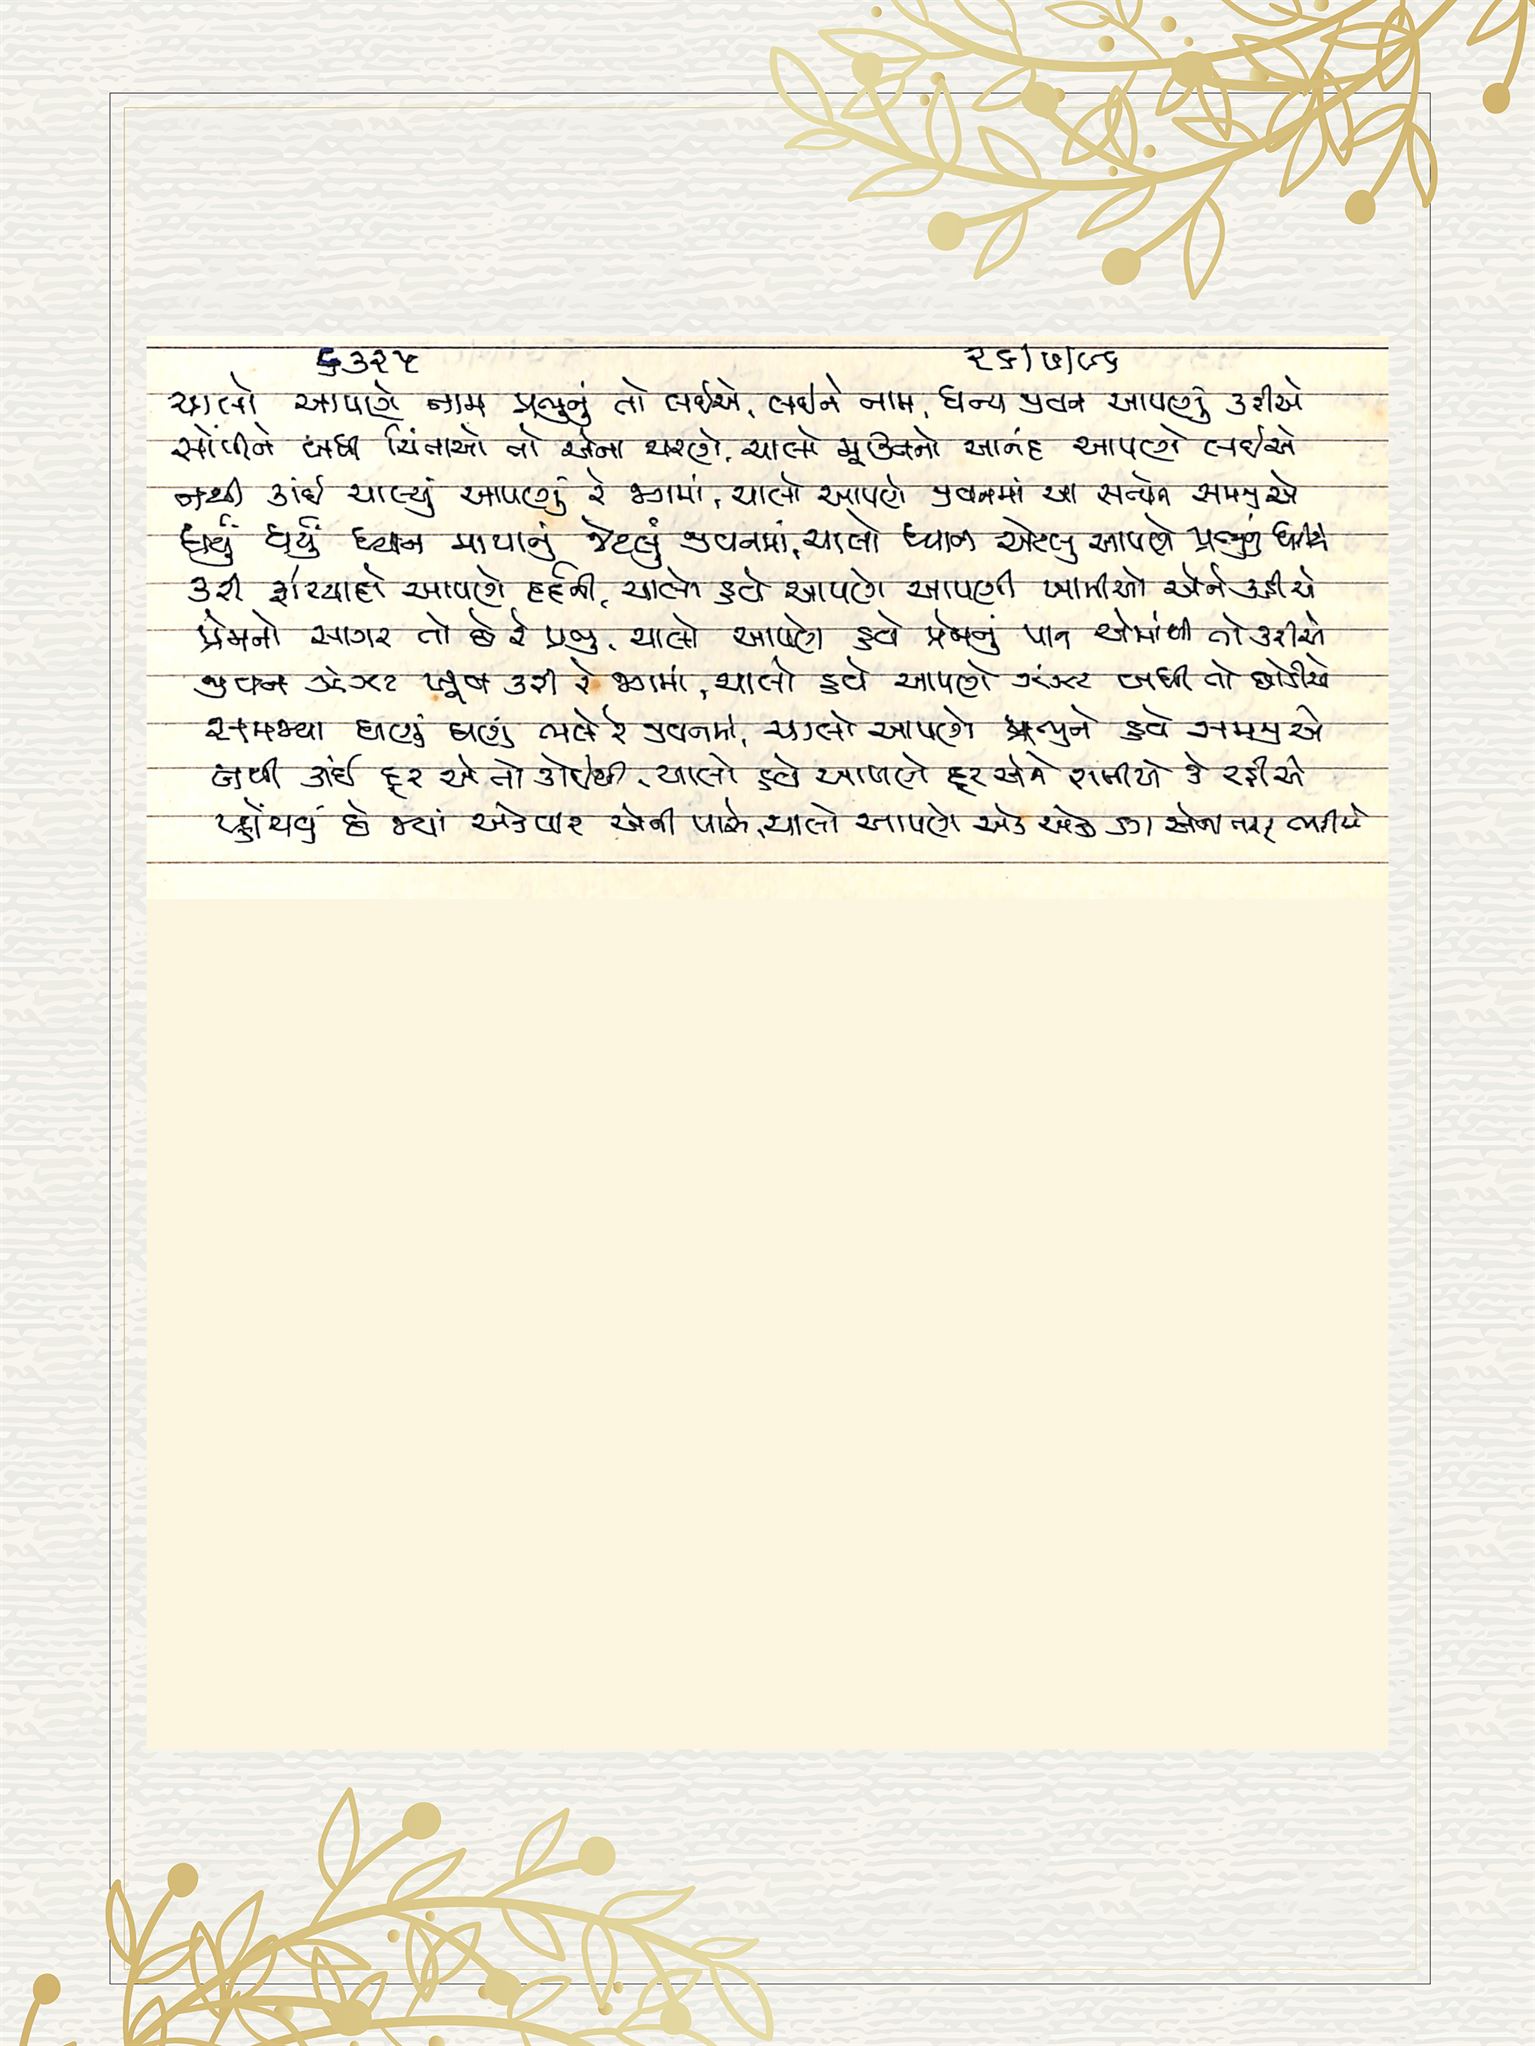 ૬૩૨૫ ૨૬/૭/૯૬
ચાલો આપણે નામ પ્રભુનું તો લઈએ, લઈને નામ, ધન્ય જીવન આપણું કરીએ
સોંપીને બધી ચિંતાઓ તો એના ચરણે, ચાલો મુક્તિનો આનંદ આપણે લઈએ
નથી કાંઈ ચાલ્યું આપણું રે જગમાં, ચાલો આપણે જીવનમાં આ સત્યને સમજીએ
ધર્યું ધર્યું ધ્યાન માયાનું જેટલું જીવનમાં, ચાલો ધ્યાન એટલુ આપણે પ્રભુનું ધરીએ
કરી ફરિયાદો આપણે દર્દની, ચાલો હવે આપણે આપણી ખામીઓ એને કહીએ
પ્રેમનો સાગર તો છે રે પ્રભુ, ચાલો આપણે હવે પ્રેમનું પાન એમાંથી તો કરીએ
જીવન ઝંઝટ ખૂબ કરી રે જગમાં, ચાલો હવે આપણે ઝંઝટ બધી તો છોડીએ
સમજ્યા ઘણું ઘણું ભલે રે જીવનમાં, ચાલો આપણે પ્રભુને હવે સમજીએ
નથી કાંઈ દૂર એ તો કોઈથી, ચાલો હવે આપણે દૂર એને રાખીએ કે રહીએ
પહોંચવું છે જ્યાં એકવાર એની પાસે, ચાલો આપણે એક એક ડગ એના તરફ ભરીએ